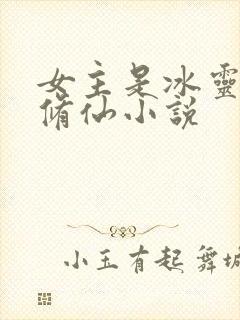 女主是冰靈
脩仙小説
小玉有起舞坡